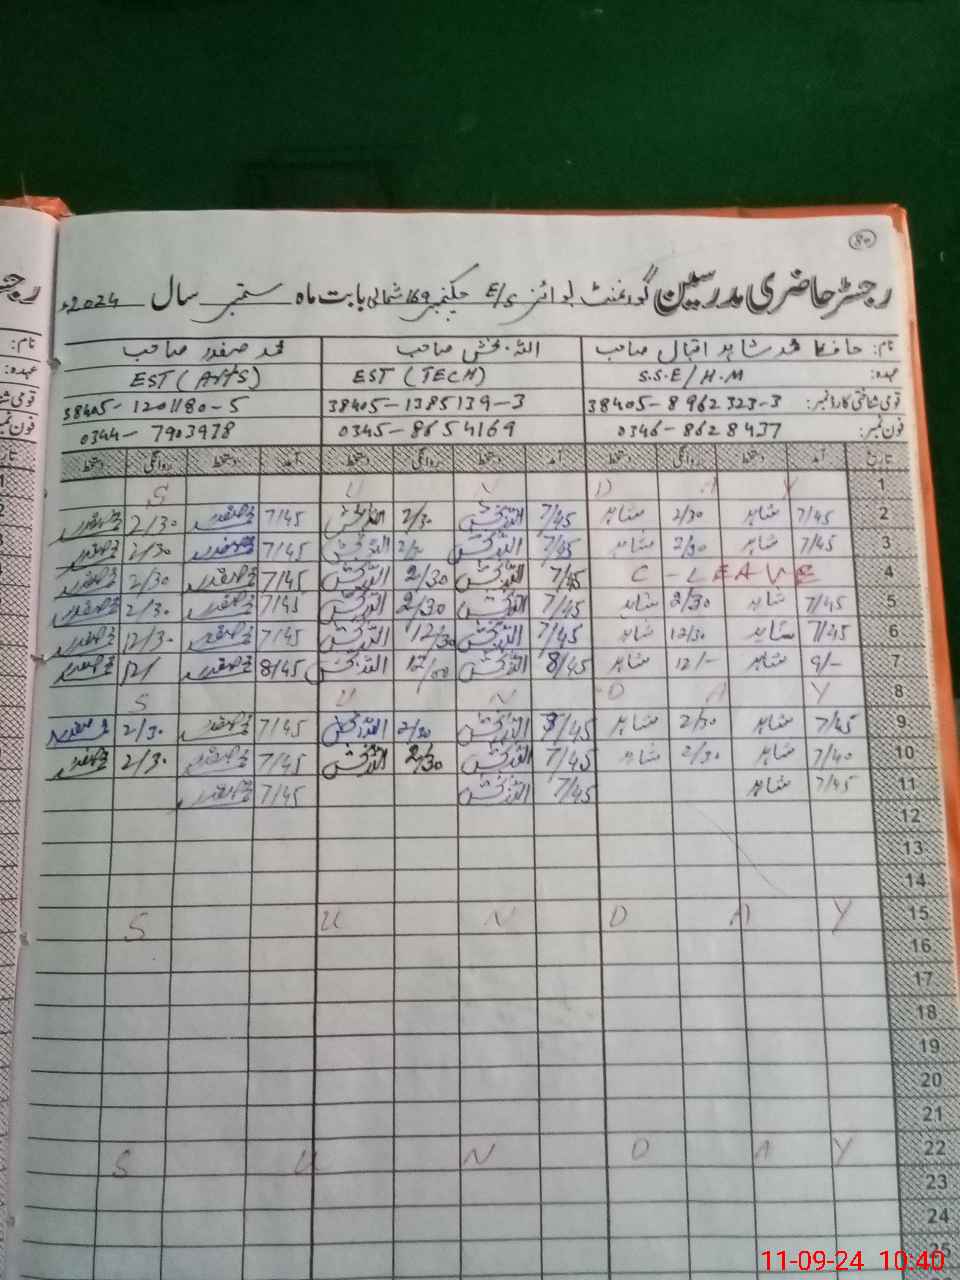 80
رجسٹر حاضری مدرسین گورنمنٹ بوائز E/S چک نمبر 169 شمالی بابت ماہ ستمبر سال 2024ء
نام: حافظ محمد شاہد اقبال صاحب اللہ بخش صاحب محمد صفدر صاحب
عہدہ: S.S.E/H.M EST (TECH) EST (Arts)
قومی شناختی کارڈ نمبر: 38405-8962323-3 38405-1385139-3 38405-1201180-5
فون نمبر: 0346-8628437 0345-8654169 0344-7903938
تاریخ آمد دستخط روانگی دستخط آمد دستخط روانگی دستخط آمد دستخط روانگی دستخط
1 S U N D A Y
2 7/45 شاہد 2/30 شاہد 7/45 اللہ بخش 2/30 اللہ بخش 7/45 محمد صفدر 2/30 محمد صفدر
3 7/45 شاہد 2/30 شاہد 7/45 اللہ بخش اللہ بخش 7/45 محمد صفدر 2/30 محمد صفدر
4 C-LEAVE 7/45 اللہ بخش 2/30 اللہ بخش 7/45 محمد صفدر 2/30 محمد صفدر
5 7/45 شاہد 2/30 شاہد 7/45 اللہ بخش 2/30 اللہ بخش 7/45 محمد صفدر 2/30 محمد صفدر
6 7/45 شاہد 12/30 شاہد 7/45 اللہ بخش 12/30 اللہ بخش 7/45 محمد صفدر 12/30 محمد صفدر
7 9/- شاہد 12/- شاہد 8/45 اللہ بخش 12/00 اللہ بخش 8/45 محمد صفدر 12/ محمد صفدر
8 S U N D A Y
9 7/45 شاہد 2/30 شاہد 7/45 اللہ بخش 2/30 اللہ بخش 7/45 محمد صفدر 2/30 محمد صفدر
10 7/40 شاہد 2/30 شاہد 7/45 اللہ بخش 2/30 اللہ بخش 7/45 محمد صفدر 2/30 محمد صفدر
11 7/45 شاہد 7/45 اللہ بخش 7/45 محمد صفدر
12
13
14
15 S U N D A Y
16
17
18
19
20
21
22 S U N D A Y
23
24
25
11-09-24 10:40